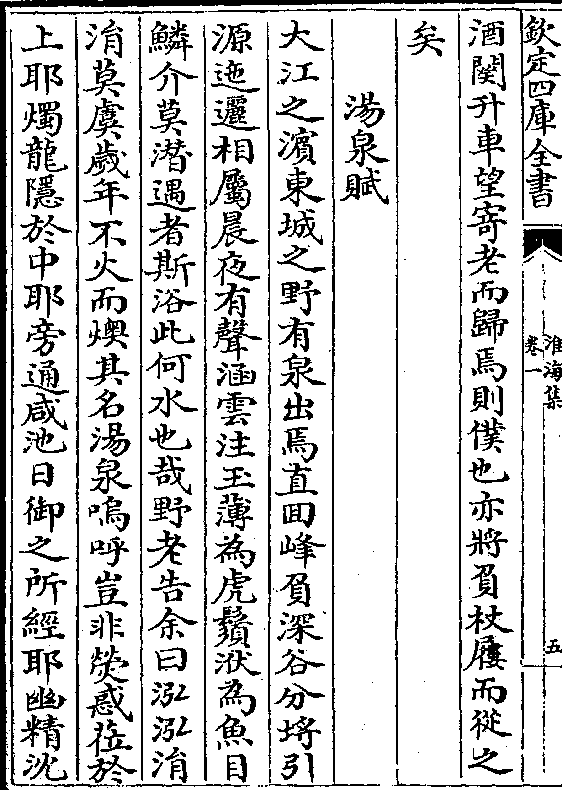 欽定四庫全書
淮海集
卷一
五
酒闋升車望寄老而歸焉則僕也亦將負杖屨而從之
矣
湯泉賦
大江之濱東城之野有泉出焉直回峰負深谷分埒引
源迤邐相屬晨夜有聲涵雲注玉薄為虎鬚洑為魚目
鱗介莫潛遇者斯浴此何水也哉野老告余曰泓泓涓
涓莫虞歲年不火而燠其名湯泉嗚呼豈非熒惑莅於
上耶燭龍隱於中耶旁通咸池日御之所經耶幽精沈